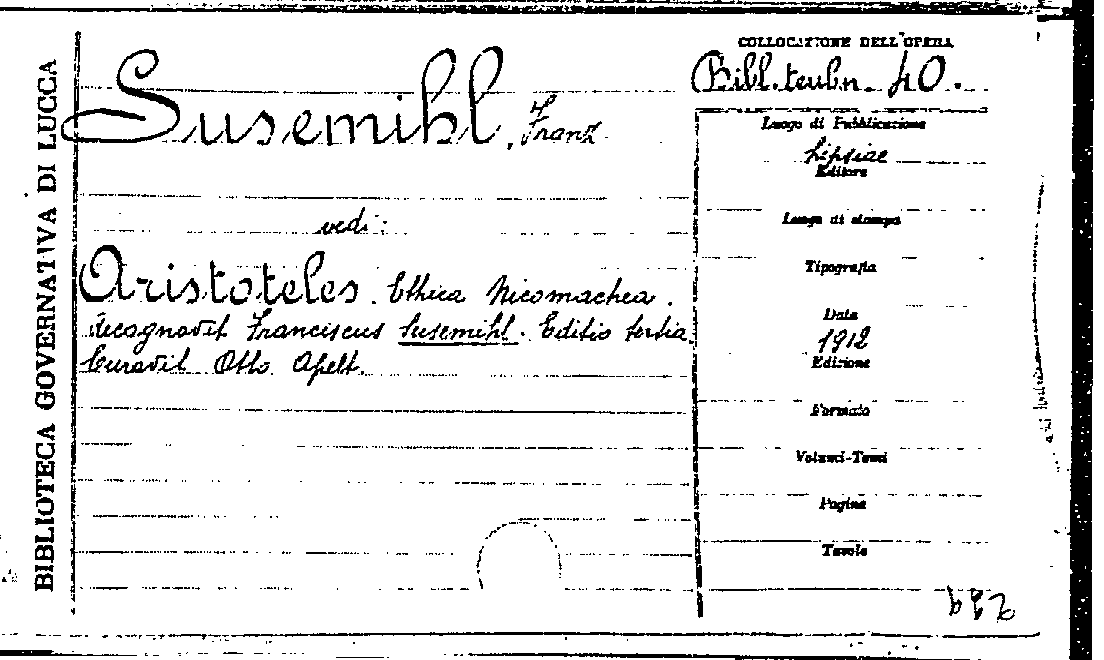 BIBLIOTECA GOVERNATIVA DI LUCCA
Susemihl, Franz
vedi:
Aristoteles. Ethica Nicomachea.
Recognovit Franciscus Susemihl. Editio tertia
Curavit Otto Apelt.
COLLOCAZIONE DELL'OPERA
Bibl. teubn. 40.
Luogo di Pubblicazione
Lipsiae
Editore
Luogo di stampa
Tipografia
Data
1912
Edizione
Formato
Volumi-Tomi
Pagine
Tavole